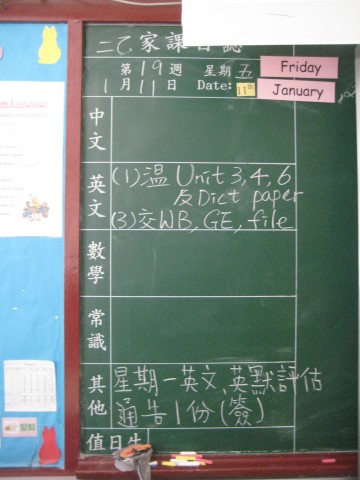 二乙家課日誌
第19週 星期五 Friday
1月11日 Date: 11th January
中文
英文
(1)溫 Unit 3, 4, 6
及Dict paper
(3)交WB, GE, file
數學
常識
其他
星期一英文、英默評估
通告1份(簽)
值日生